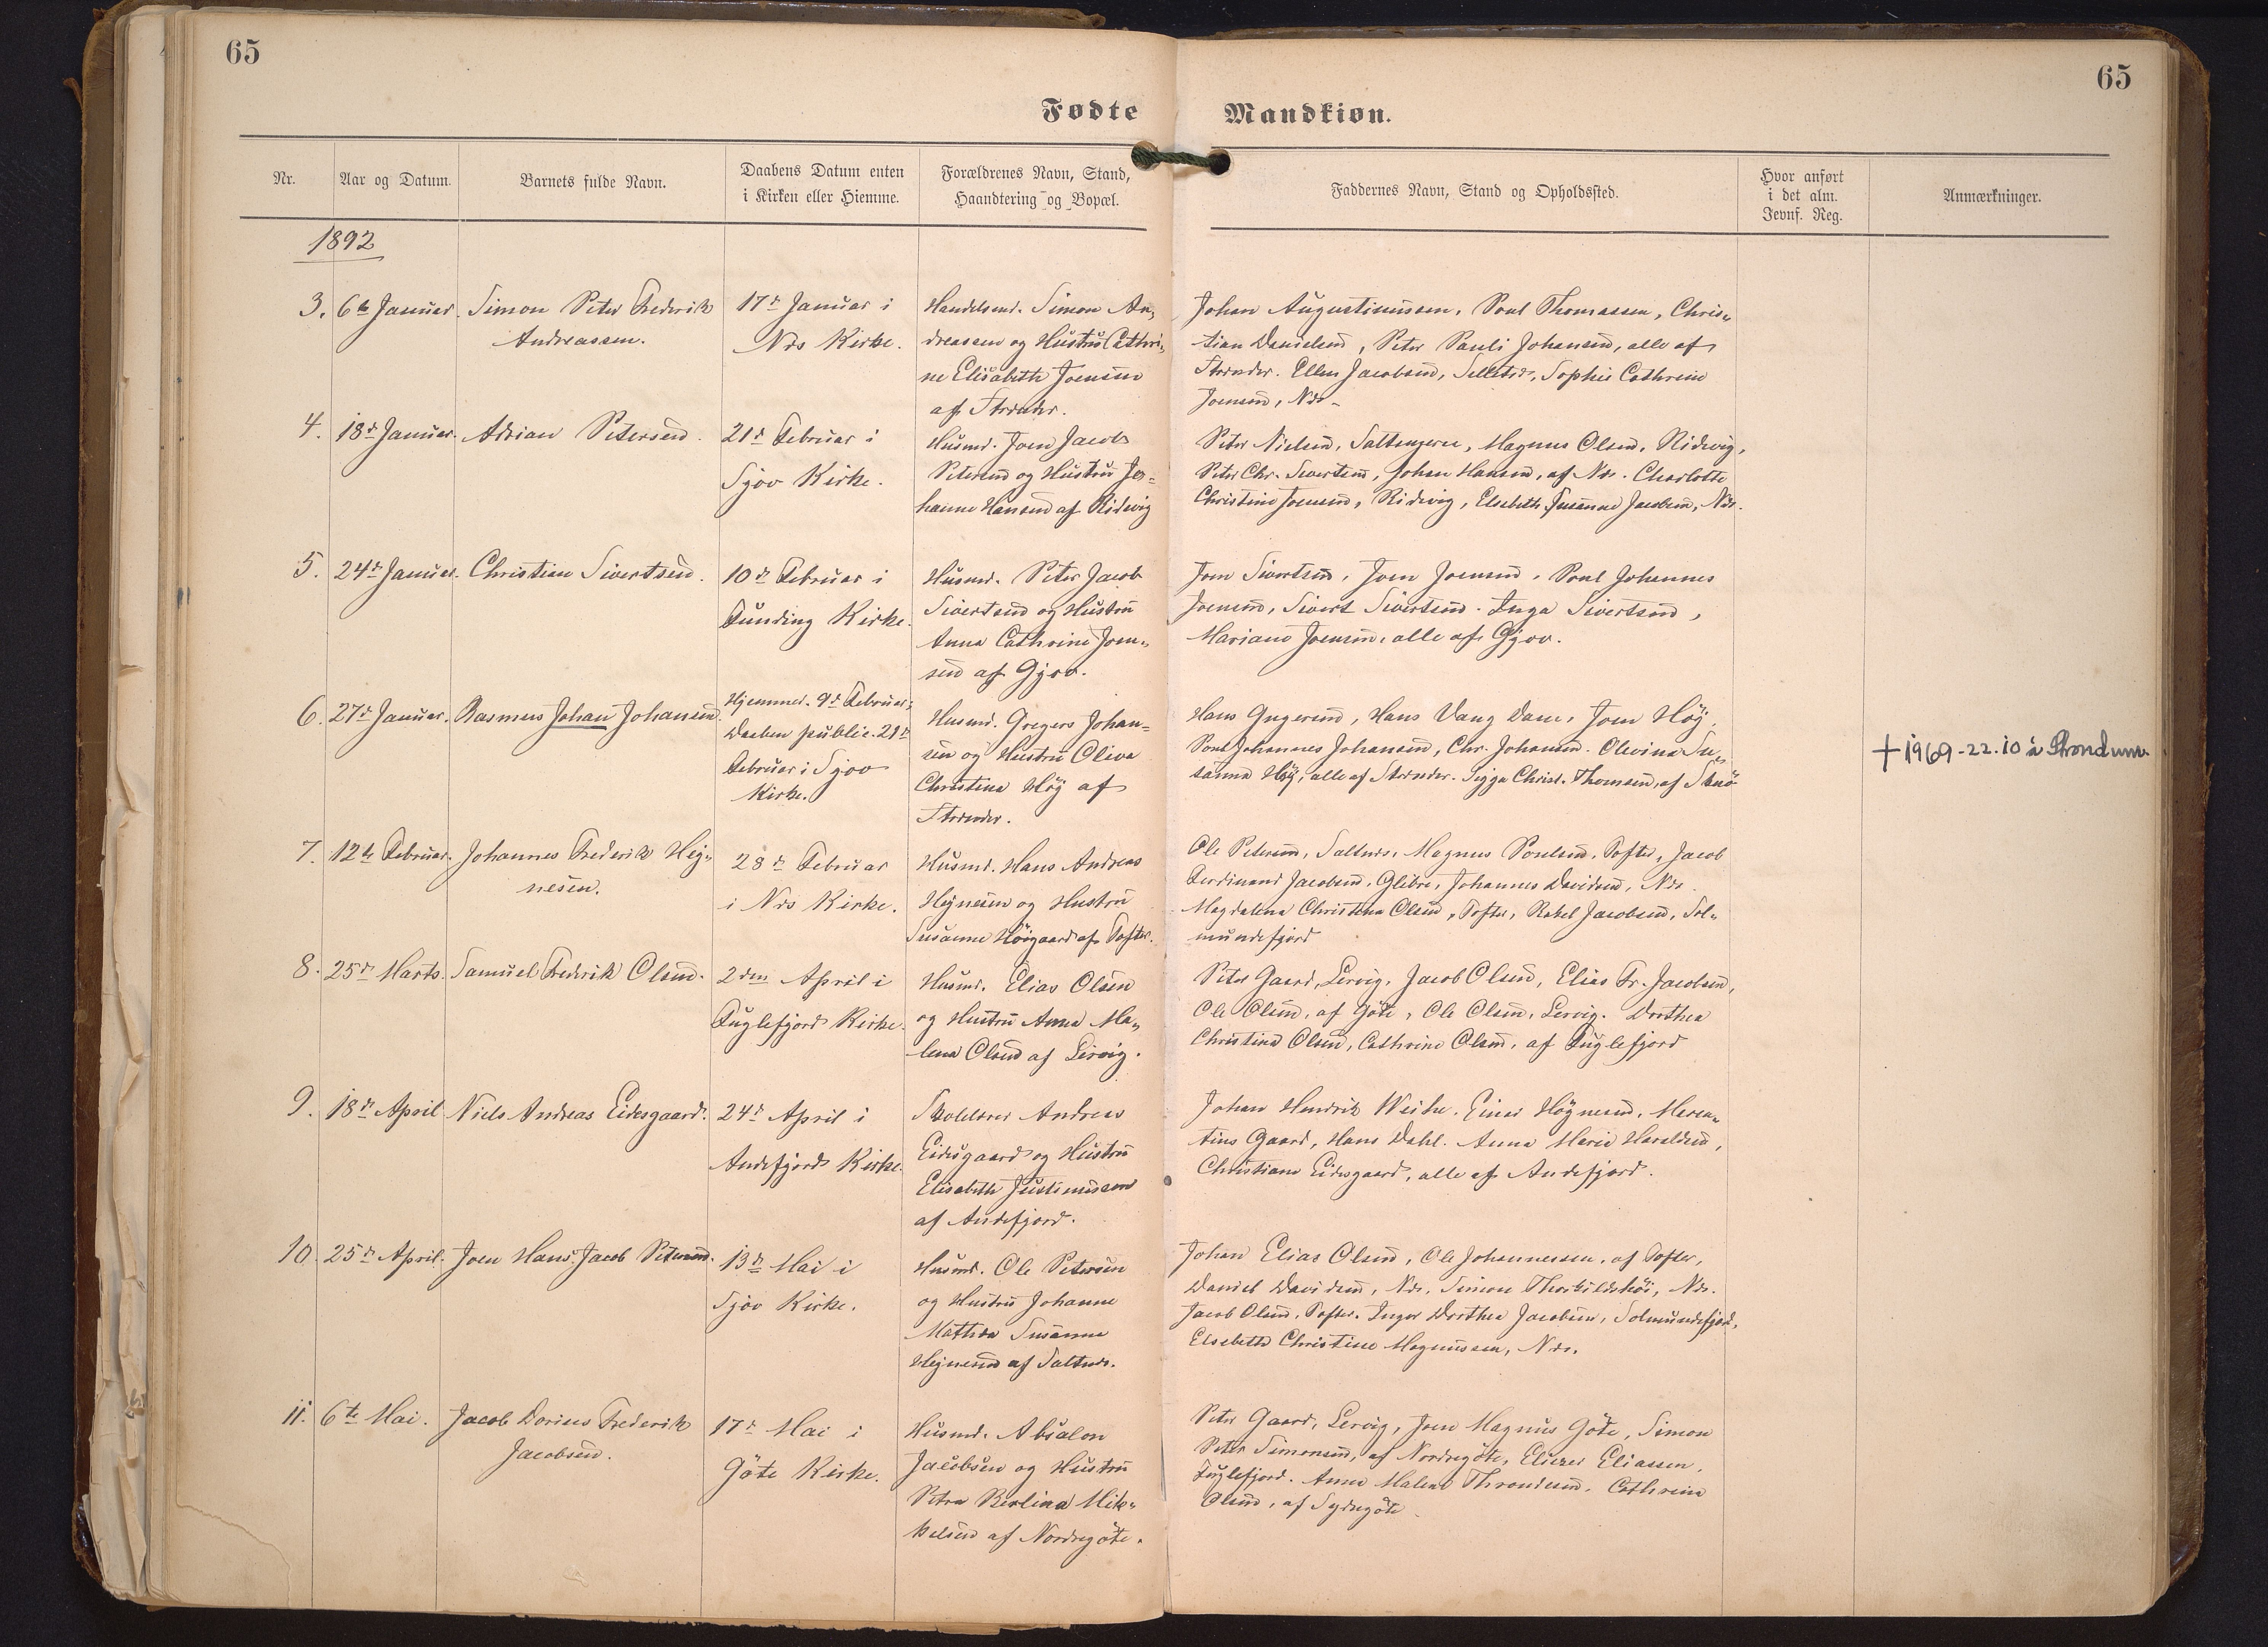 65
65
Fødte
Mandkiøn.
Nr.
Aar og Datum.
Barnets fulde Navn.
Daabens Datum enten
i Kirken eller Hiemme.
Forældrenes Navn, Stand,
Haandtering og Bopæl.
Faddernes Navn, Stand og Opholdssted.
Hvor anført
i det alm.
Jevnf. Reg.
Anmærkninger.
1892
3. 6te Januar. Simon Peter Frederik
Andreassen.
17d Januar i
Nds Kirke.
Handelsmd. Simon An-
dreassen og Hustru Cathri-
ne Elisabeth Joensen
af Strænder.
Johan Augustinussen, Poul Thomassen, Chris-
tian Danielsen, Peter Pauli Johansen, alle af
Strænder. Ellen Jacobsen, Sophie Cathrine
Joensen, Nds.
4. 18d Januar. Adrian Petersen.
21d Februar i
Sjov Kirke.
Husmd. Joen Jacob
Petersen og Hustru Jo-
hanne Hansen af Ridevig
Peter Nielsen, Magnus Olsen, Ridevig,
Peter Chr. Sivertsen, Johan Hansen, af Nds. Charlotte
Christine Joensen, Ridevig, Elsebeth Susanne Jacobsen, Nds.
5. 24d Januar. Christian Sivertsen.
10d Februar i
Funding Kirke.
Husmd. Peter Jacob
Sivertsen og Hustru
Anna Cathrine Joen-
sen af Gjov.
Joen Sivertsen, Joen Joensen, Poul Johannes
Joensen, Sivert Sivertsen. Inga Sivertsen,
Mariane Joensen, alle af Gjov.
6. 27d Januar. Rasmus Johan Johansen.
Hjemmed. 9d Februar,
Daaben public. 21d
Februar i Sjov
Kirke.
Husmd. Gregers Johan-
sen og Hustru Oliva
Christina Høj af
Strænder.
Hans Vang Dam, Joen Høj,
Poul Johannes Johansen, Chr. Johansen. Olevina Su-
sanna Høj, alle af Strænder. Sigga Christ. Thomsen, af
+ 1969-22.10 á Strondum.
7. 12te Februar. Johannes Frederik Hej-
nesen.
28d Februar
i Nds Kirke.
Husmd. Hans Andreas
Hejnesen og Hustru
Susanne Höjgaard af Tofter.
Ole Petersen, Saltnæs, Magnus Poulsen, Tofter, Jacob
Ferdinand Jacobsen, Glibre, Johannes Davidsen, Nds.
Magdalena Christina Olsen, Tofter, Rakel Jacobsen, Sol-
mundefjord
8. 25d Marts. Samuel Frederik Olsen.
2den April i
Fuglefjord Kirke.
Husmd. Elias Olsen
og Hustru Anna Ma-
lena Olsen af Lervig.
Peter Gaard, Lervig, Jacob Olsen, Elias Fr. Jacobsen,
Ole Olsen, af Göte, Ole Olsen, Lervig. Dorthea
Christina Olsen, Cathrine Olsen, af Fuglefjord
9. 18d April Niels Andreas Eidesgaard.
24d April i
Andefjord Kirke.
Skolelærer Andreas
Eidesgaard og Hustru
Elisabeth Justinussen
af Andefjord.
Johan Hendrik Weihe, Einar Högnesen,
Gaard, Hans Dahl. Anna Marie Haraldsen,
Christiane Eidesgaard, alle af Andefjord.
10. 25d April. Joen Hans Jacob Petersen.
13d Mai i
Sjov Kirke.
Husmd. Ole Petersen
og Hustru Johanne
Mathea Susanne
Hejnesen af Saltnæs.
Johan Elias Olsen, Ole Johannessen, af Tofter,
Daniel Davidsen, Nds, Simon Thorkildshöi, Nds.
Jacob Olsen, Tofter. Inger Dorthea Jacobsen, Solmundefjord,
Elsebeth Christine Magnussen, Nds.
11. 6te Mai. Jacob Dorius Frederik
Jacobsen.
17d Mai i
Göte Kirke.
Husmd. Absalon
Jacobsen og Hustru
Petra Berlina Mik-
kelsen af Nordregöte.
Peter Gaard, Lervig, Joen Magnus Göte, Simon
Peter Simonsen, af Nordregöte, Eliezer Eliassen,
Fuglefjord. Anna Malene Throndsen, Cathrina
Olsen, af Sydregöte.